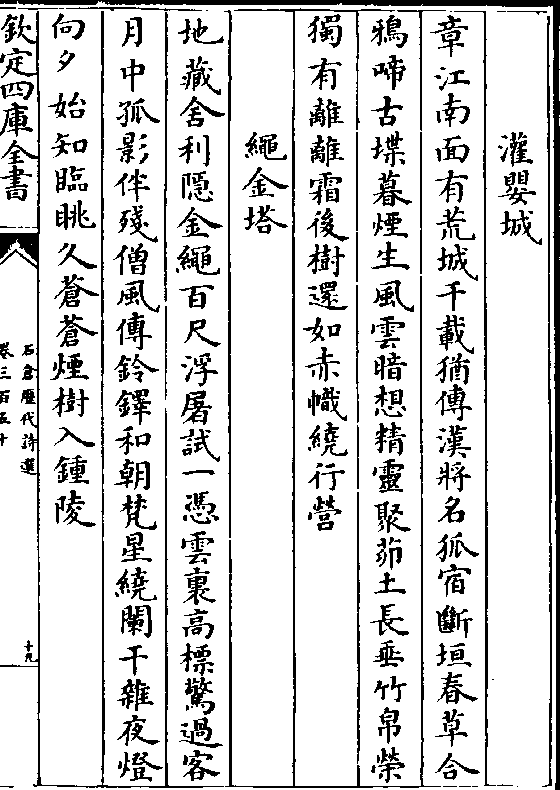 灌嬰城
章江南面有荒城千載猶傳漢將名狐宿斷垣春草合
鴉啼古堞暮煙生風雲暗想精靈聚茆土長垂竹帛榮
獨有離離霜後樹還如赤幟繞行營
繩金塔
地藏舍利隠金繩百尺浮屠試一憑雲裏高標驚過客
月中孤影伴殘僧風傳鈴鐸和朝梵星繞闌干雜夜燈
向夕始知臨眺久蒼蒼煙樹入鍾陵
欽定四庫全書
石倉歷代詩選
卷三百五十
十九